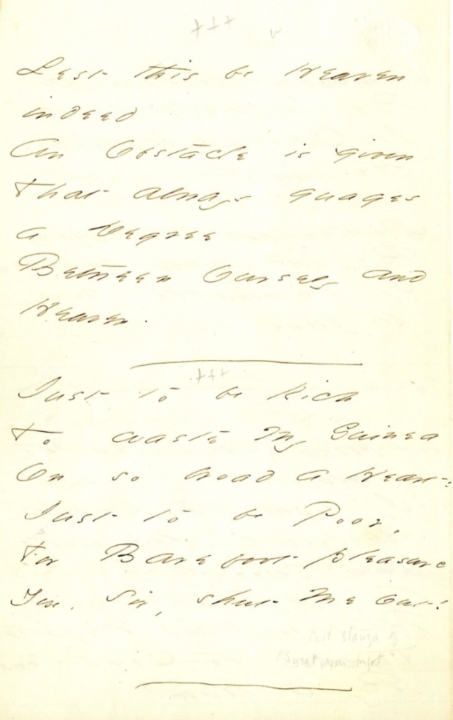 +++
Lest this be Heaven
indeed
An Obstacle is given
That always guages
a Degree
Between Ourself and
Heaven.
+++
Just to be Rich
To waste my Guinea
On so broad a Heart!
Just to be Poor,
For Barefoot pleasure
You, Sir, shut me out!
stanza of